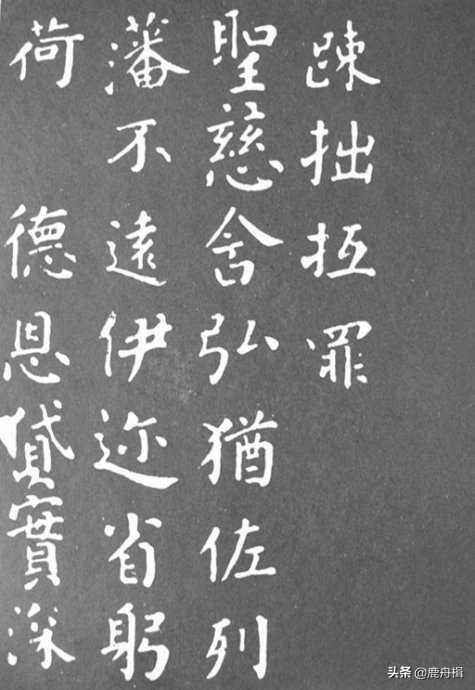 踈拙抵罪
聖慈含弘猶佐列
藩不遠伊迩省躬
荷 德恩貸實深
头条 @鹿舟楫